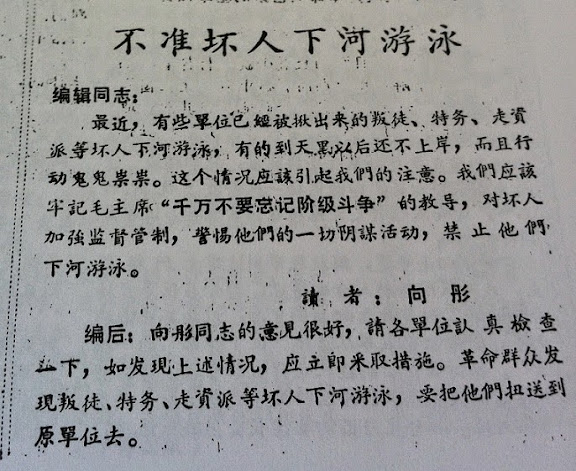 不准坏人下河游泳
编辑同志：
最近，有些單位已經被揪出来的叛徒、特务、走資
派等坏人下河游泳，有的到天黑以后还不上岸，而且行
动鬼鬼祟祟。这个情况应該引起我們的注意。我們应該
牢記毛主席“千万不要忘记阶级斗争”的教导，对坏人
加強监督管制，警惕他們的一切阴謀活动，禁止他們
下河游泳。
讀者：向彤
编后：向彤同志的意見很好，請各單位認真檢查
一下，如发現上述情况，应立即采取措施。革命群众发
現叛徒、特务、走資派等坏人下河游泳，要把他們扭送到
原單位去。